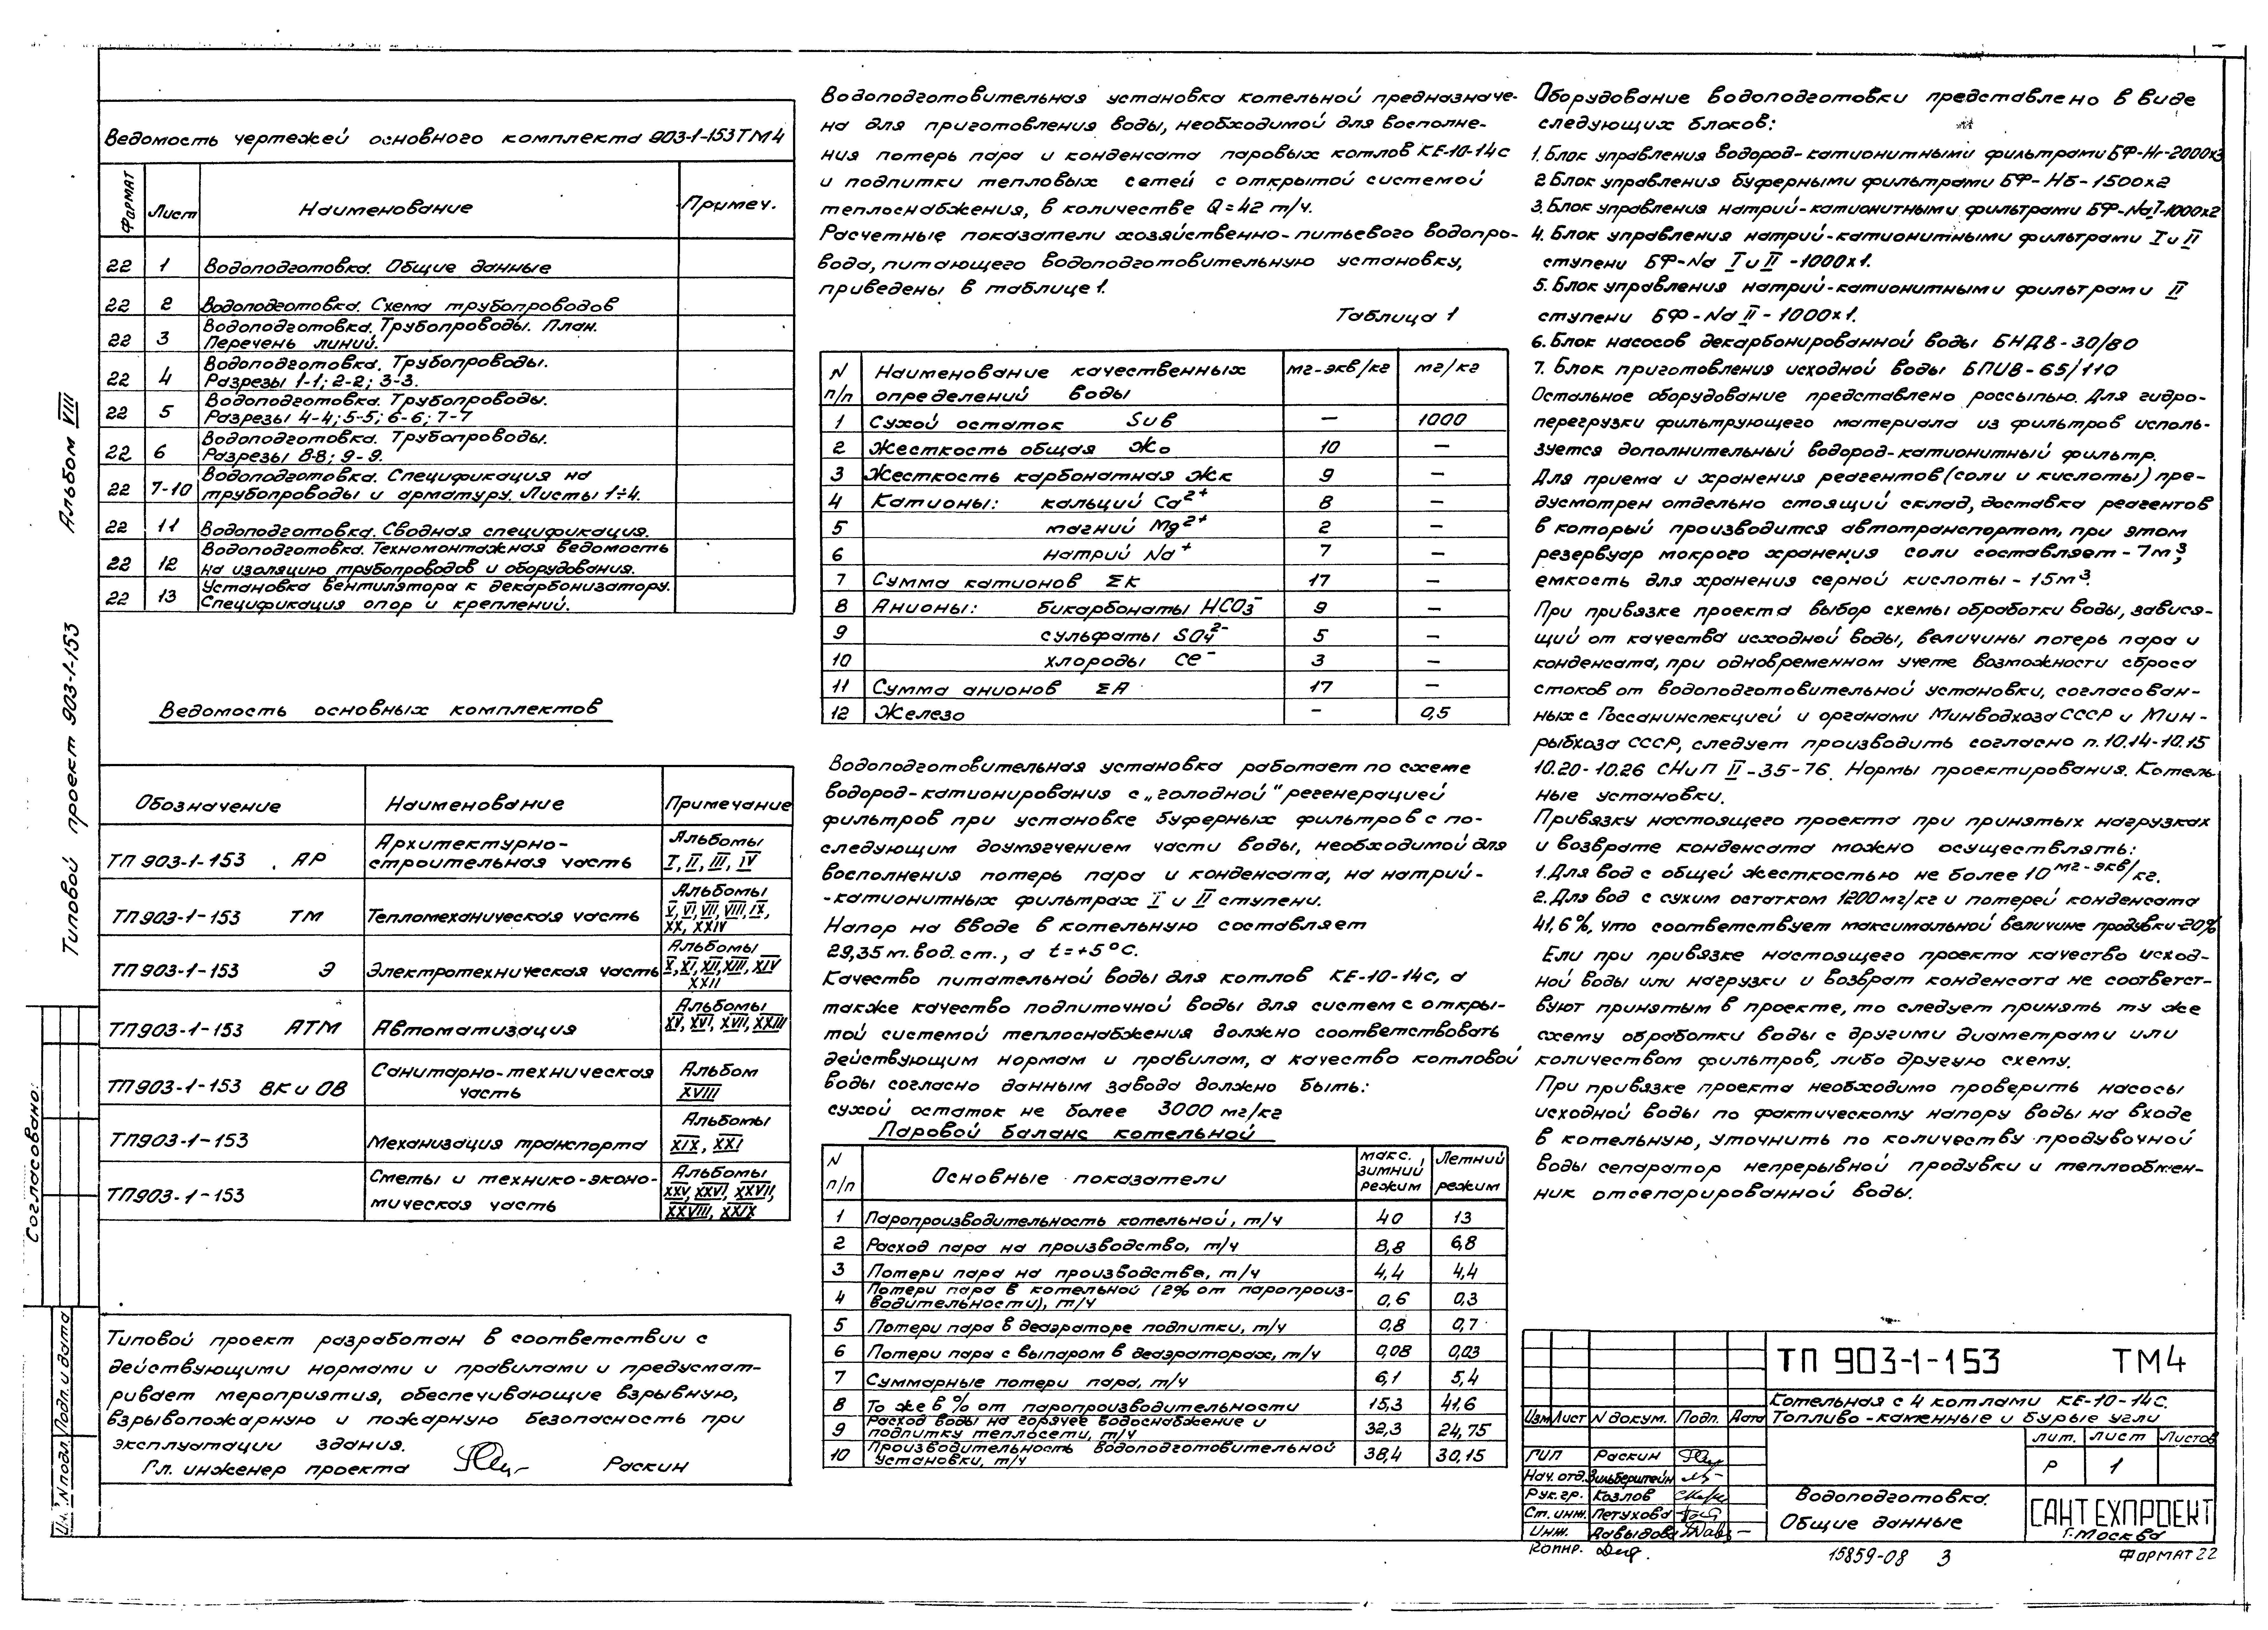 Альбом VIII
Типовой проект 903-1-153
Согласовано:
Подп. и дата
N подл.
Ведомость чертежей основного комплекта 903-1-153 ТМ4
Формат Лист Наименование Примеч.
22 1 Водоподготовка. Общие данные
22 2 Водоподготовка. Схема трубопроводов
22 3 Водоподготовка. Трубопроводы. План.
Перечень линий.
22 4 Водоподготовка. Трубопроводы.
Разрезы 1-1; 2-2; 3-3.
22 5 Водоподготовка. Трубопроводы.
Разрезы 4-4; 5-5; 6-6; 7-7
22 6 Водоподготовка. Трубопроводы.
Разрезы 8-8; 9-9.
22 7-10 Водоподготовка. Спецификация на
трубопроводы и арматуру. Листы 1÷4.
22 11 Водоподготовка. Сводная спецификация.
22 12 Водоподготовка. Техномонтажная ведомость
на изоляцию трубопроводов и оборудования.
22 13 Установка вентилятора к декарбонизатору.
Спецификация опор и креплений.
Ведомость основных комплектов
Обозначение Наименование Примечание
ТП 903-1-153 АР Архитектурно-строительная часть Альбомы I, II, III, IV
ТП 903-1-153 ТМ Тепломеханическая часть Альбомы V, VI, VII, VIII, IX, XX, XXIV
ТП 903-1-153 Э Электротехническая часть Альбомы X, XI, XII, XIII, XIV XXII
ТП 903-1-153 АТМ Автоматизация Альбомы XV, XVI, XVII, XXIII
ТП 903-1-153 ВК и ОВ Санитарно-техническая часть Альбом XVIII
ТП 903-1-153 Механизация транспорта Альбомы XIX, XXI
ТП 903-1-153 Сметы и технико-экономическая часть Альбомы XXV, XXVI, XXVII, XXVIII, XXIX
Типовой проект разработан в соответствии с
действующими нормами и правилами и предусмат-
ривает мероприятия, обеспечивающие взрывную,
взрывопожарную и пожарную безопасность при
эксплуатации здания.
Гл. инженер проекта Раскин
Водоподготовительная установка котельной предназначе-
на для приготовления воды, необходимой для восполне-
ния потерь пара и конденсата паровых котлов КЕ-10-14с
и подпитки тепловых сетей с открытой системой
теплоснабжения, в количестве Q=42 т/ч.
Расчетные показатели хозяйственно-питьевого водопро-
вода, питающего водоподготовительную установку,
приведены в таблице 1.
Таблица 1
N п/п Наименование качественных определений воды мг-экв/кг мг/кг
1 Сухой остаток Sив — 1000
2 Жесткость общая Жо 10 —
3 Жесткость карбонатная Жк 9 —
4 Катионы: кальций Ca²⁺ 8 —
5 магний Mg²⁺ 2 —
6 натрий Na⁺ 7 —
7 Сумма катионов ΣК 17 —
8 Анионы: бикарбонаты HCO₃⁻ 9 —
9 сульфаты SO₄²⁻ 5 —
10 хлориды Cl⁻ 3 —
11 Сумма анионов ΣА 17 —
12 Железо — 0,5
Водоподготовительная установка работает по схеме
водород-катионирования с „голодной" регенерацией
фильтров при установке буферных фильтров с по-
следующим доумягчением части воды, необходимой для
восполнения потерь пара и конденсата, на натрий-
-катионитных фильтрах I и II ступени.
Напор на вводе в котельную составляет
29,35 м.вод.ст., а t=+5°С.
Качество питательной воды для котлов КЕ-10-14с, а
также качество подпиточной воды для систем с откры-
той системой теплоснабжения должно соответствовать
действующим нормам и правилам, а качество котловой
воды согласно данным завода должно быть:
сухой остаток не более 3000 мг/кг
Паровой баланс котельной
N п/п Основные показатели макс. зимний режим Летний режим
1 Паропроизводительность котельной, т/ч 40 13
2 Расход пара на производство, т/ч 8,8 6,8
3 Потери пара на производстве, т/ч 4,4 4,4
4 Потери пара в котельной (2% от паропроиз-
водительности), т/ч 0,6 0,3
5 Потери пара в деаэраторе подпитки, т/ч 0,8 0,7
6 Потери пара с выпаром в деаэраторах, т/ч 0,08 0,03
7 Суммарные потери пара, т/ч 6,1 5,4
8 То же в % от паропроизводительности 15,3 41,6
9 Расход воды на горячее водоснабжение и
подпитку теплосети, т/ч 32,3 24,75
10 Производительность водоподготовительной
установки, т/ч 38,4 30,15
Оборудование водоподготовки представлено в виде
следующих блоков:
1. Блок управления водород-катионитными фильтрами БФ-Нг-2000х3
2 Блок управления буферными фильтрами БФ-НБ-1500х2
3. Блок управления натрий-катионитными фильтрами БФ-NaI-1000х2
4. Блок управления натрий-катионитными фильтрами I и II
ступени БФ-Na I и II -1000х1.
5. Блок управления натрий-катионитными фильтрами II
ступени БФ-Na II-1000х1.
6. Блок насосов декарбонированной воды БНДВ-30/80
7. Блок приготовления исходной воды БПИВ-65/110
Остальное оборудование представлено россыпью. Для гидро-
перегрузки фильтрующего материала из фильтров исполь-
зуется дополнительный водород-катионитный фильтр.
Для приема и хранения реагентов (соли и кислоты) пре-
дусмотрен отдельно стоящий склад, доставка реагентов
в который производится автотранспортом, при этом
резервуар мокрого хранения соли составляет - 7м³,
емкость для хранения серной кислоты - 15м³.
При привязке проекта выбор схемы обработки воды, завися-
щий от качества исходной воды, величины потерь пара и
конденсата, при одновременном учете возможности сброса
стоков от водоподготовительной установки, согласован-
ных с Госсанинспекцией и органами Минводхоза СССР и Мин-
рыбхоза СССР, следует производить согласно п. 10.14-10.15
10.20-10.26 СНиП II-35-76. Нормы проектирования. Котель
ные установки.
Привязку настоящего проекта при принятых нагрузках
и возврате конденсата можно осуществлять:
1. Для вод с общей жесткостью не более 10 мг-экв/кг.
2. Для вод с сухим остатком 1200мг/кг и потерей конденсата
41,6%, что соответствует максимальной величине продувки-20%
Если при привязке настоящего проекта качество исход-
ной воды или нагрузки и возврат конденсата не соответст-
вуют принятым в проекте, то следует принять ту же
схему обработки воды с другими диаметрами или
количеством фильтров, либо другую схему.
При привязке проекта необходимо проверить насосы
исходной воды по фактическому напору воды на входе
в котельную, уточнить по количеству продувочной
воды сепаратор непрерывной продувки и теплообмен-
ник отсепарированной воды.
ТП 903-1-153 ТМ4
Котельная с 4 котлами КЕ-10-14С.
Топливо-каменные и бурые угли
Изм Лист N докум. Подп. Дата
ГИП Раскин
Нач. отд. Зильберштейн
Рук. гр. Козлов
Ст. инж. Петухова
Инж. Давыдова
Лит. Лист Листов
Р 1
Водоподготовка.
Общие данные
САНТЕХПРОЕКТ
г. Москва
Копир.
15859-08 3
Формат 22